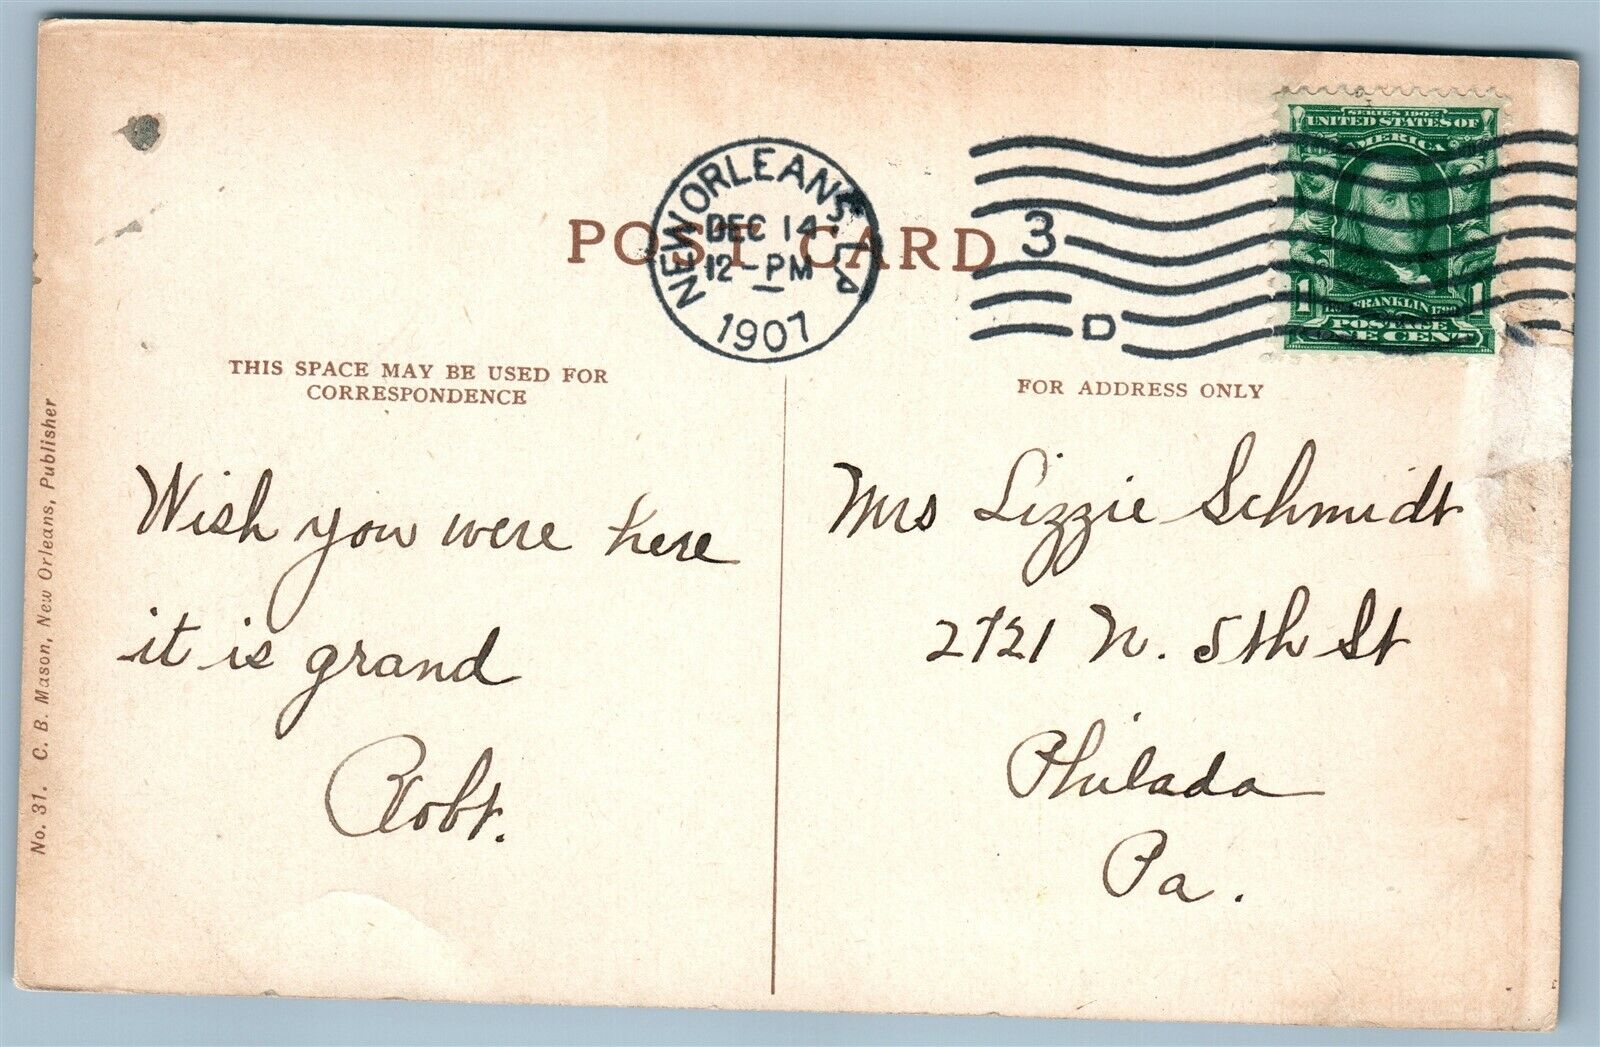 POST CARD
NEW ORLEANS, LA
DEC 14
12-PM
1907
3
D
SERIES 1902
UNITED STATES OF
AMERICA
FRANKLIN
1 1
POSTAGE
ONE CENT
THIS SPACE MAY BE USED FOR
CORRESPONDENCE
Wish you were here
it is grand
Robt.
FOR ADDRESS ONLY
Mrs Lizzie Schmidt
2721 N. 5th St
Philada
Pa.
No. 31. C. B. Mason, New Orleans, Publisher